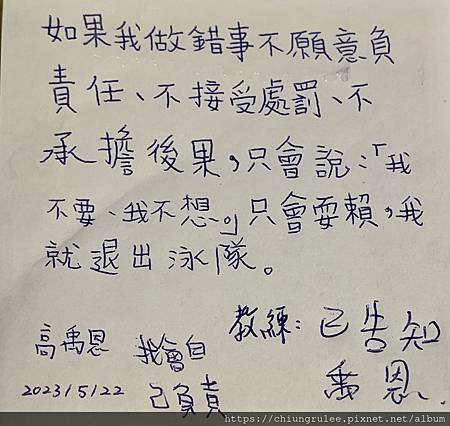 如果我做錯事不願意負
責任、不接受處罰、不
承擔後果，只會說：「我
不要、我不想。」只會耍賴，我
就退出泳隊。
高禹恩
2023/5/22
我會自
己負責
教練：已告知
禹恩
https://chiungrulee.pixnet.net/album